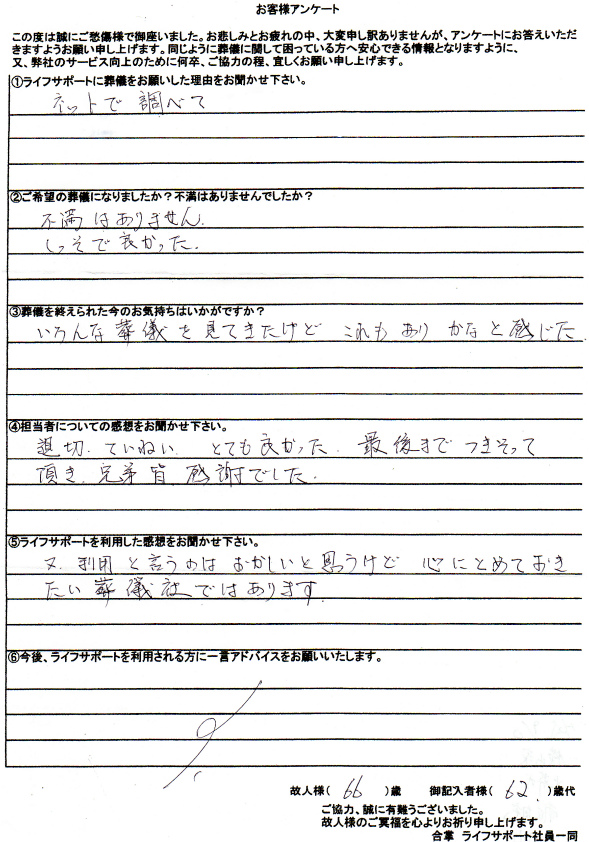 お客様アンケート
この度は誠にご愁傷様で御座いました。お悲しみとお疲れの中、大変申し訳ありませんが、アンケートにお答えいただ
きますようお願い申し上げます。同じように葬儀に関して困っている方へ安心できる情報となりますように、
又、弊社のサービス向上のために何卒、ご協力の程、宜しくお願い申し上げます。
①ライフサポートに葬儀をお願いした理由をお聞かせ下さい。
ネットで調べて
②ご希望の葬儀になりましたか？不満はありませんでしたか？
不満はありません.
しっそで良かった.
③葬儀を終えられた今のお気持ちはいかがですか？
いろんな葬儀を見てきたけど これもありかなと感じた
④担当者についての感想をお聞かせ下さい。
適切. ていねい. とても良かった. 最後までつきそって
頂き. 兄弟皆 感謝でした.
⑤ライフサポートを利用した感想をお聞かせ下さい。
又. 利用と言うのはおかしいと思うけど 心にとめておき
たい葬儀社ではあります.
⑥今後、ライフサポートを利用される方に一言アドバイスをお願いいたします。
故人様( 66 )歳 御記入者様( 62. )歳代
ご協力、誠に有難うございました。
故人様のご冥福を心よりお祈り申し上げます。
合掌 ライフサポート社員一同